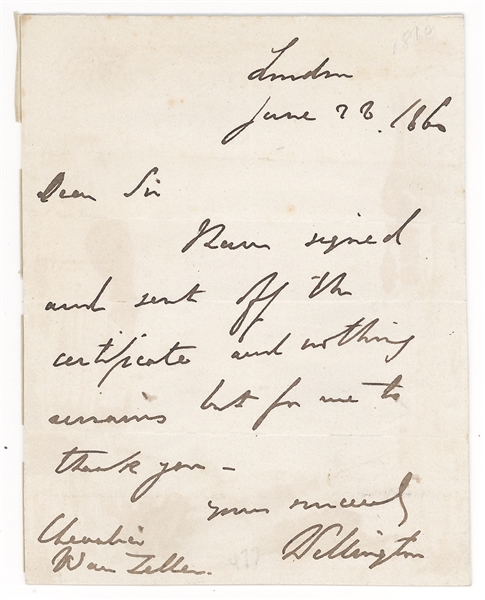 1860
London
June 22. 1860
Dear Sir
I have signed
and sent off the
certificate and nothing
remains but for me to
thank you –
yours sincerely
Wellington
Chevalier
Van Zeller.